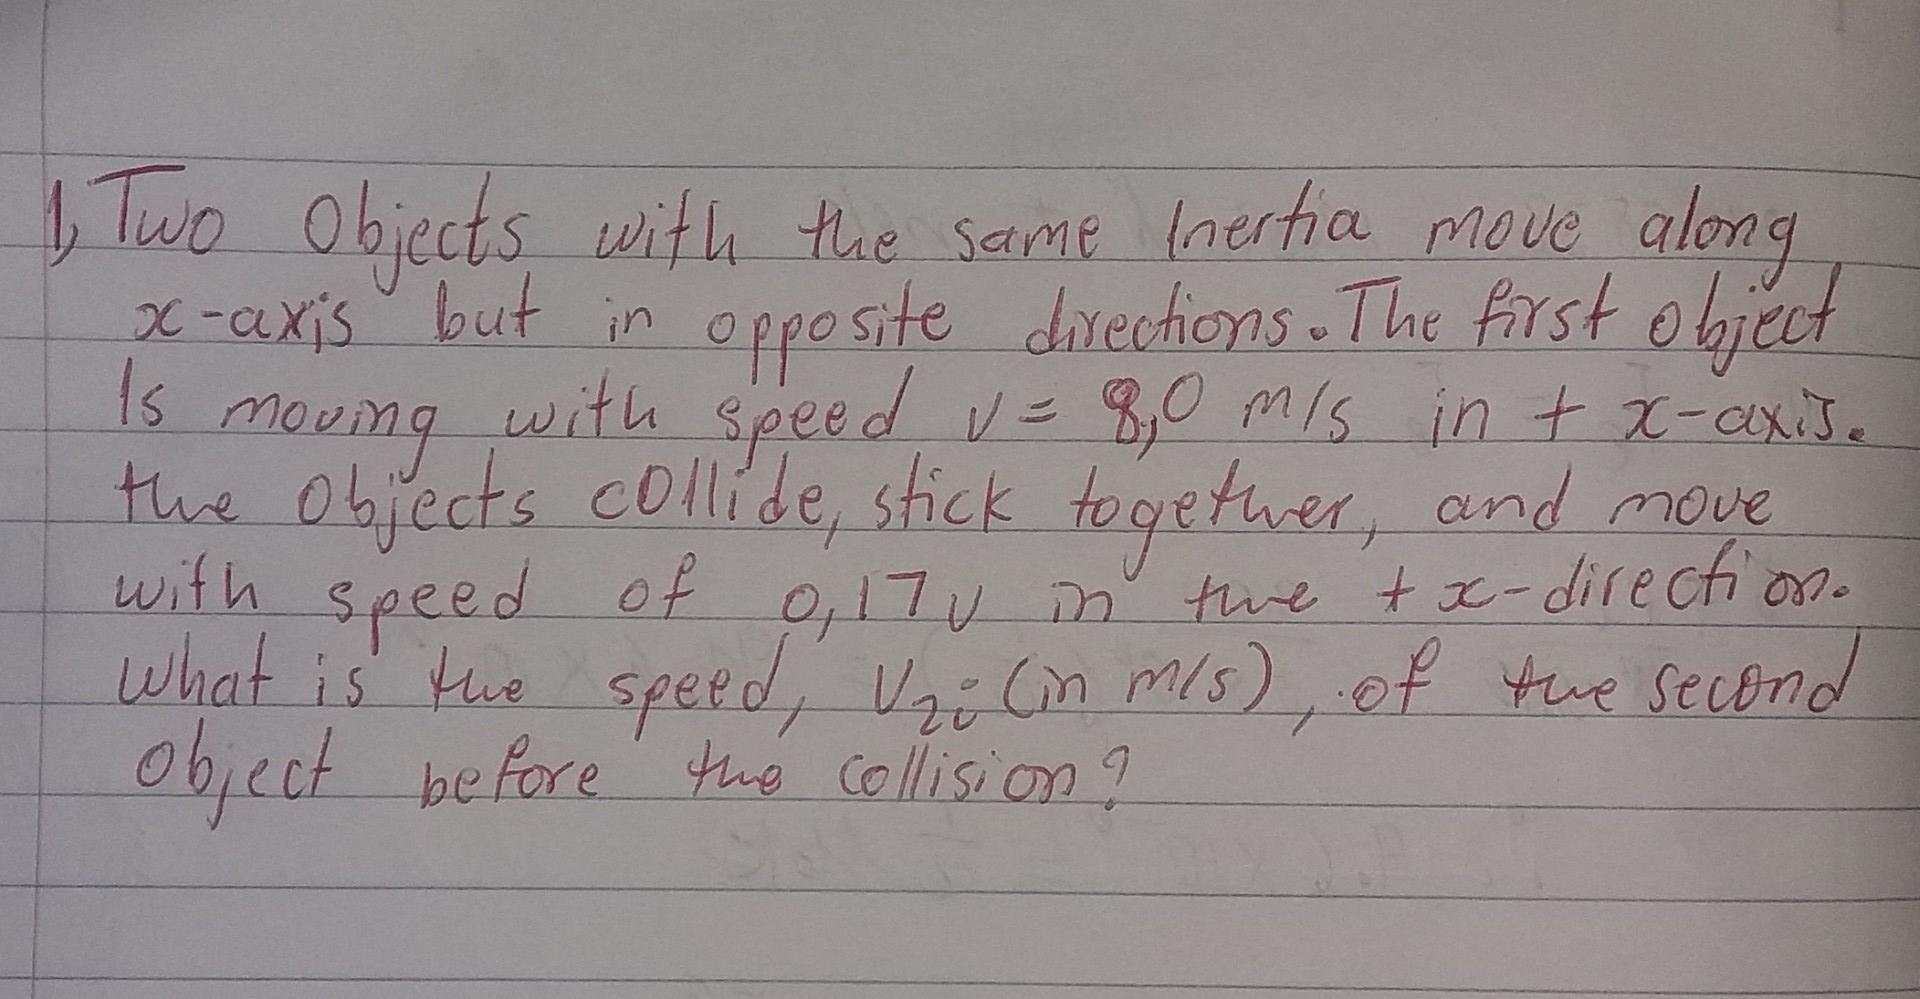 1, Two Objects with the same Inertia move along
x-axis but in opposite directions. The first object
Is moving with speed v = 8,0 m/s in + x-axis.
the Objects collide, stick together, and move
with speed of 0,17v in the + x-direction.
What is the speed, V2i (in m/s), of the second
Object before the collision?